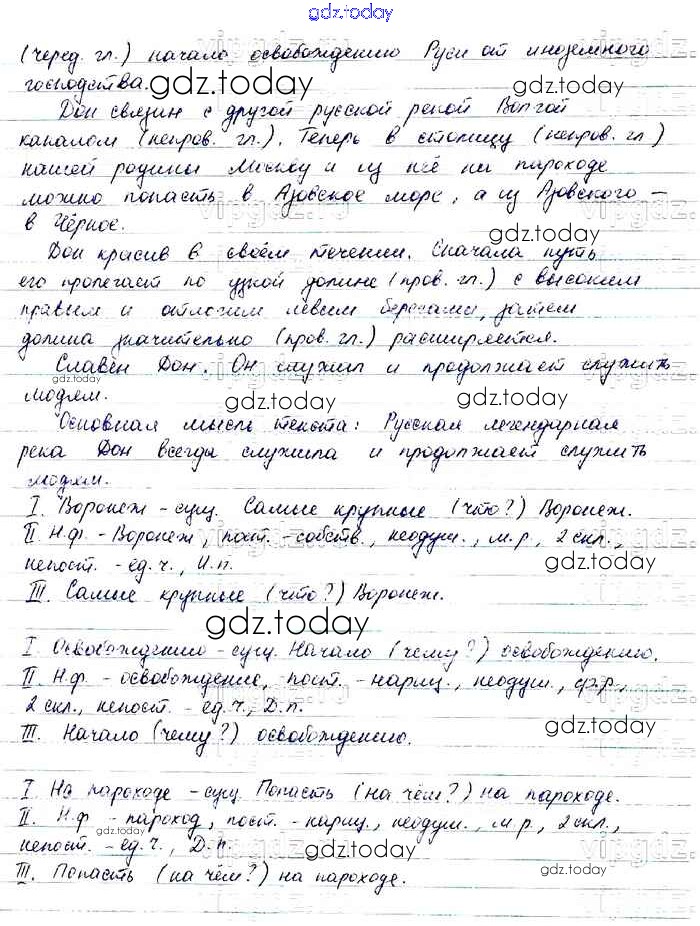 gdz.today
(черед. гл.) начало освобождению Руси от иноземного
господства.
Дон связан с другой русской рекой Волгой
каналом (непров. гл.). Теперь в столицу (непров. гл)
нашей родины Москву и из неё на пароходе
можно попасть в Азовское море, а из Азовского –
в Чёрное.
Дон красив в своём течении. Сначала путь
его пролегает по узкой долине (пров. гл.) с высоким
правым и отлогим левым берегами, затем
долина значительно (пров. гл.) расширяется.
Славен Дон. Он служил и продолжает служить
людям.
Основная мысль текста: Русская легендарная
река Дон всегда служила и продолжает служить
людям.
I. Воронеж – сущ. Самые крупные (что?) Воронеж.
II. Н.ф. – Воронеж, пост. – собств., неодуш., м.р., 2 скл.,
непост. – ед.ч., И.п.
III. Самые крупные (что?) Воронеж.
I. Освобождению – сущ. Начало (чему?) освобождению.
II. Н.ф. – освобождение, пост. – нариц., неодуш., ср.р.,
2 скл., непост. – ед.ч., Д.п.
III. Начало (чему?) освобождению.
I. На пароходе – сущ. Попасть (на чём?) на пароходе.
II. Н.ф – пароход, пост. – нариц., неодуш., м.р., 2 скл.,
непост. – ед.ч., Д.п.
III. Попасть (на чём?) на пароходе.